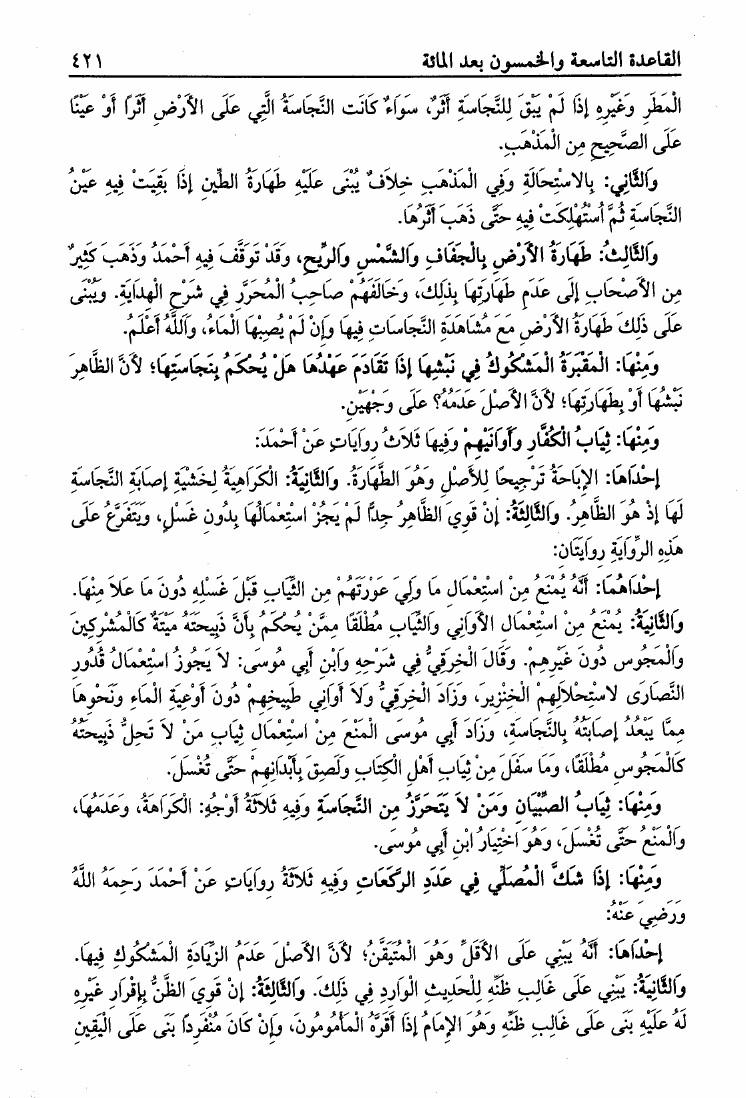 القاعدة التاسعة والخمسون بعد المائة ٤٢١
الْمَطَرِ وَغَيْرِهِ إِذَا لَمْ يَبْقَ لِلنَّجَاسَةِ أَثَرٌ، سَوَاءٌ كَانَت النَّجَاسَةُ الَّتِي عَلَى الأَرْضِ أَثَرًا أَوْ عَيْنًا
عَلَى الصَّحِيحِ مِن الْمَذْهَبِ.
وَالثَّانِي: بِالاسْتِحَالَةِ وَفِي الْمَذْهَبِ خِلاَفٌ يُبْنَى عَلَيْهِ طَهَارَةُ الطِّينِ إِذَا بَقِيَتْ فِيهِ عَيْنُ
النَّجَاسَةِ ثُمَّ اُسْتُهْلِكَتْ فِيهِ حَتَّى ذَهَبَ أَثَرُهَا.
وَالثَّالِثُ: طَهَارَةُ الأَرْضِ بِالْجَفَافِ وَالشَّمْسِ وَالرِّيحِ، وَقَدْ تَوَقَّفَ فِيهِ أَحْمَدُ وَذَهَبَ كَثِيرٌ
مِن الأَصْحَابِ إِلَى عَدَمِ طَهَارَتِهَا بِذَلِكَ، وَخَالَفَهُمْ صَاحِبُ الْمُحَرَّرِ فِي شَرْحِ الْهِدَايَةِ. وَيُبْنَى
عَلَى ذَلِكَ طَهَارَةُ الأَرْضِ مَعَ مُشَاهَدَةِ النَّجَاسَاتِ فِيهَا وَإِنْ لَمْ يُصِبْهَا الْمَاءُ، وَاَللَّهُ أَعْلَمُ.
وَمِنْهَا: الْمَقْبَرَةُ الْمَشْكُوكُ فِي نَبْشِهَا إِذَا تَقَادَمَ عَهْدُهَا هَلْ يُحْكَمُ بِنَجَاسَتِهَا؛ لأَنَّ الظَّاهِرَ
نَبْشُهَا أَوْ بِطَهَارَتِهَا؛ لأَنَّ الأَصْلَ عَدَمُهُ؟ عَلَى وَجْهَيْنِ.
وَمِنْهَا: ثِيَابُ الْكُفَّارِ وَأَوَانِيْهِمْ وَفِيهَا ثَلاَثُ رِوَايَاتٍ عَنْ أَحْمَدَ:
إِحْدَاهَا: الإِبَاحَةُ تَرْجِيحًا لِلأَصْلِ وَهُوَ الطَّهَارَةُ. وَالثَّانِيَةُ: الْكَرَاهِيَةُ لِخَشْيَةِ إِصَابَةِ النَّجَاسَةِ
لَهَا إِذْ هُوَ الظَّاهِرُ. وَالثَّالِثَةُ: إِنْ قَوِيَ الظَّاهِرُ جِدًّا لَمْ يَجُزْ اسْتِعْمَالُهَا بِدُونِ غَسْلٍ، وَيَتَفَرَّعُ عَلَى
هَذِهِ الرِّوَايَةِ رِوَايَتَانِ:
إِحْدَاهُمَا: أَنَّهُ يُمْنَعُ مِنْ اسْتِعْمَالِ مَا وَلِيَ عَوْرَتَهُمْ مِن الثِّيَابِ قَبْلَ غَسْلِهِ دُونَ مَا عَلاَ مِنْهَا.
وَالثَّانِيَةُ: يُمْنَعُ مِنْ اسْتِعْمَالِ الأَوَانِي وَالثِّيَابِ مُطْلَقًا مِمَّنْ يُحْكَمُ بِأَنَّ ذَبِيحَتَهُ مَيْتَةٌ كَالْمُشْرِكِينَ
وَالْمَجُوسِ دُونَ غَيْرِهِمْ. وَقَالَ الْخِرَقِيُّ فِي شَرْحِهِ وَابْنِ أَبِي مُوسَى: لاَ يَجُوزُ اسْتِعْمَالُ قُدُورِ
النَّصَارَى لاسْتِحْلاَلِهِمْ الْخِنْزِيرَ، وَزَادَ الْخِرَقِيُّ وَلاَ أَوَانِي طَبِيخِهِمْ دُونَ أَوْعِيَةِ الْمَاءِ وَنَحْوِهَا
مِمَّا يَبْعُدُ إِصَابَتُهُ بِالنَّجَاسَةِ، وَزَادَ أَبِي مُوسَى الْمَنْعَ مِنْ اسْتِعْمَالِ ثِيَابِ مَنْ لاَ تَحِلُّ ذَبِيحَتُهُ
كَالْمَجُوسِ مُطْلَقًا، وَمَا سَفَلَ مِنْ ثِيَابِ أَهْلِ الْكِتَابِ وَلَصِقَ بِأَبْدَانِهِمْ حَتَّى تُغْسَلَ.
وَمِنْهَا: ثِيَابُ الصِّبْيَانِ وَمَنْ لاَ يَتَحَرَّزُ مِن النَّجَاسَةِ وَفِيهِ ثَلاَثَةُ أَوْجُهٍ: الْكَرَاهَةُ، وَعَدَمُهَا،
وَالْمَنْعُ حَتَّى تُغْسَلَ، وَهُوَ اخْتِيَارُ ابْنِ أَبِي مُوسَى.
وَمِنْهَا: إِذَا شَكَّ الْمُصَلِّي فِي عَدَدِ الرَّكَعَاتِ وَفِيهِ ثَلاَثَةُ رِوَايَاتٍ عَنْ أَحْمَدَ رَحِمَهُ اللَّهُ
وَرَضِيَ عَنْهُ:
إِحْدَاهَا: أَنَّهُ يَبْنِي عَلَى الأَقَلِّ وَهُوَ الْمُتَيَقَّنُ؛ لأَنَّ الأَصْلَ عَدَمُ الزِّيَادَةِ الْمَشْكُوكِ فِيهَا.
وَالثَّانِيَةُ: يَبْنِي عَلَى غَالِبِ ظَنِّهِ لِلْحَدِيثِ الْوَارِدِ فِي ذَلِكَ. وَالثَّالِثَةُ: إِنْ قَوِيَ الظَّنُّ بِإِقْرَارِ غَيْرِهِ
لَهُ عَلَيْهِ بَنَى عَلَى غَالِبِ ظَنِّهِ وَهُوَ الإِمَامُ إِذَا أَقَرَّهُ الْمَأْمُومُونَ، وَإِنْ كَانَ مُنْفَرِدًا بَنَى عَلَى الْيَقِينِ